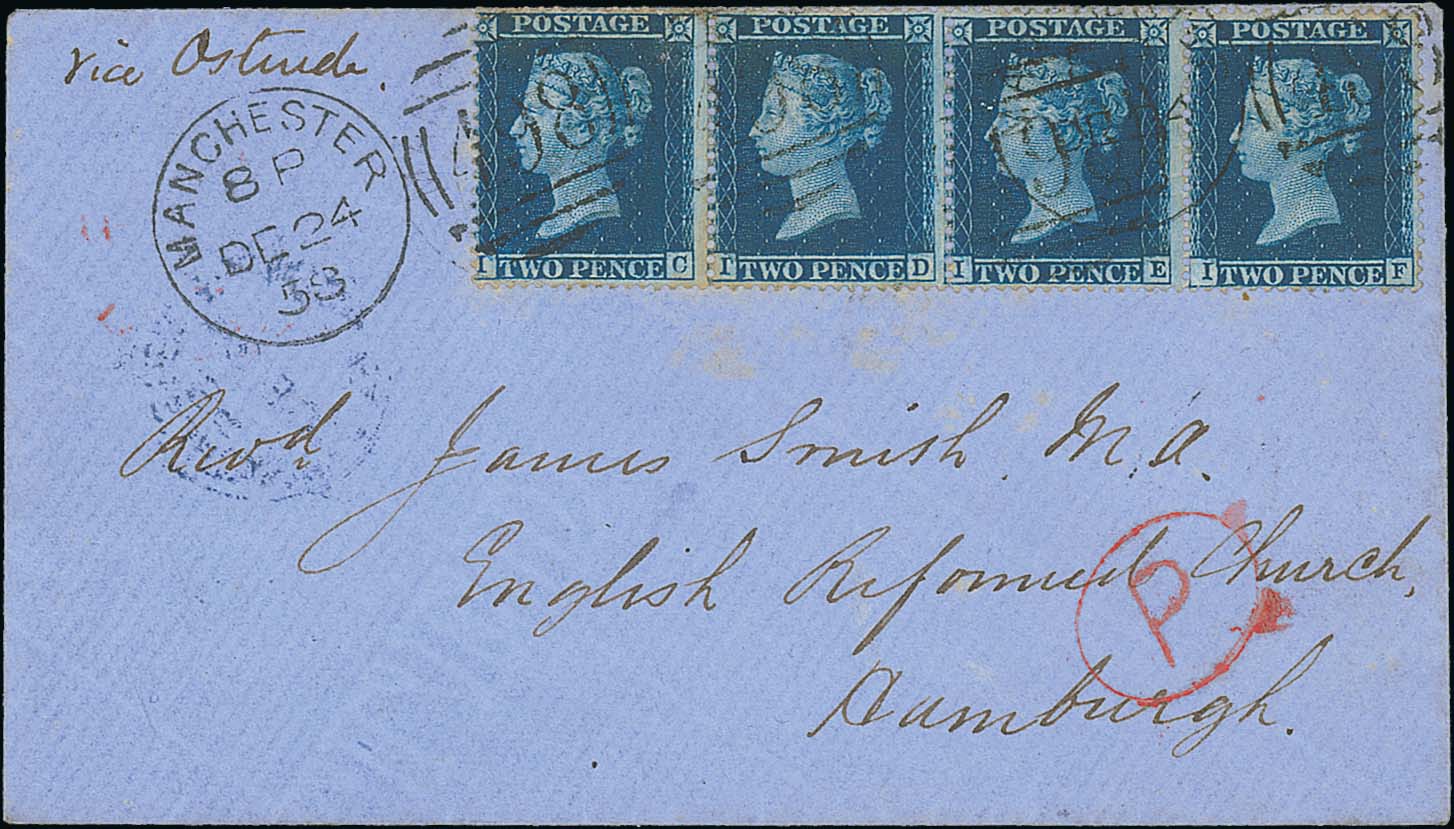 via Ostende.
POSTAGE POSTAGE POSTAGE POSTAGE
I TWO PENCE C I TWO PENCE D I TWO PENCE E I TWO PENCE F
MANCHESTER
8 P
DE 24
58
498
Revd James Smith M.A.
English Reformed Church,
Hamburgh.
P